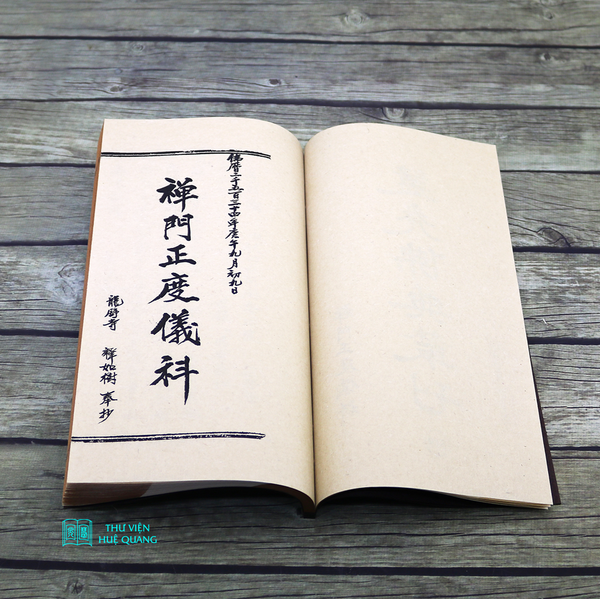 佛曆二千五百三十四年庚午九月初九日
禅門正度儀科
龍寺 釋如樹 奉抄
THƯ VIỆN
HUỆ QUANG